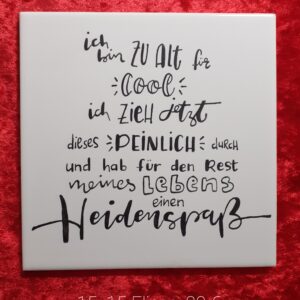 ich
bin ZU Alt für
COOL
ich ZiEH JETZT
dieses PEINLICH durch
und hab für den Rest
meines LEBENS
einen
Heidenspaß